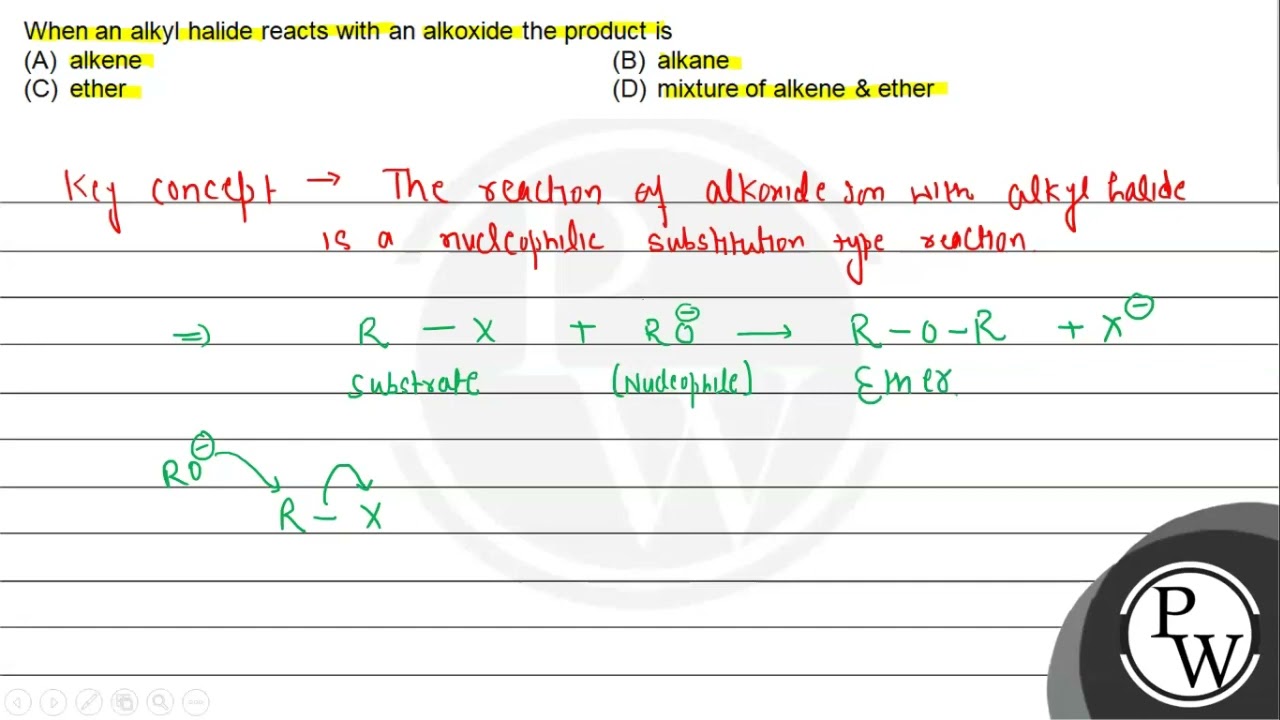 When an alkyl halide reacts with an alkoxide the product is
(A) alkene (B) alkane
(C) ether (D) mixture of alkene & ether
Key concept → The reaction of alkoxide ion with alkyl halide
is a nucleophilic substitution type reaction
⇒ R – X + RO⊖ → R – O – R + X⊖
Substrate (Nucleophile) Ether
RO⊖
R – X
P
W